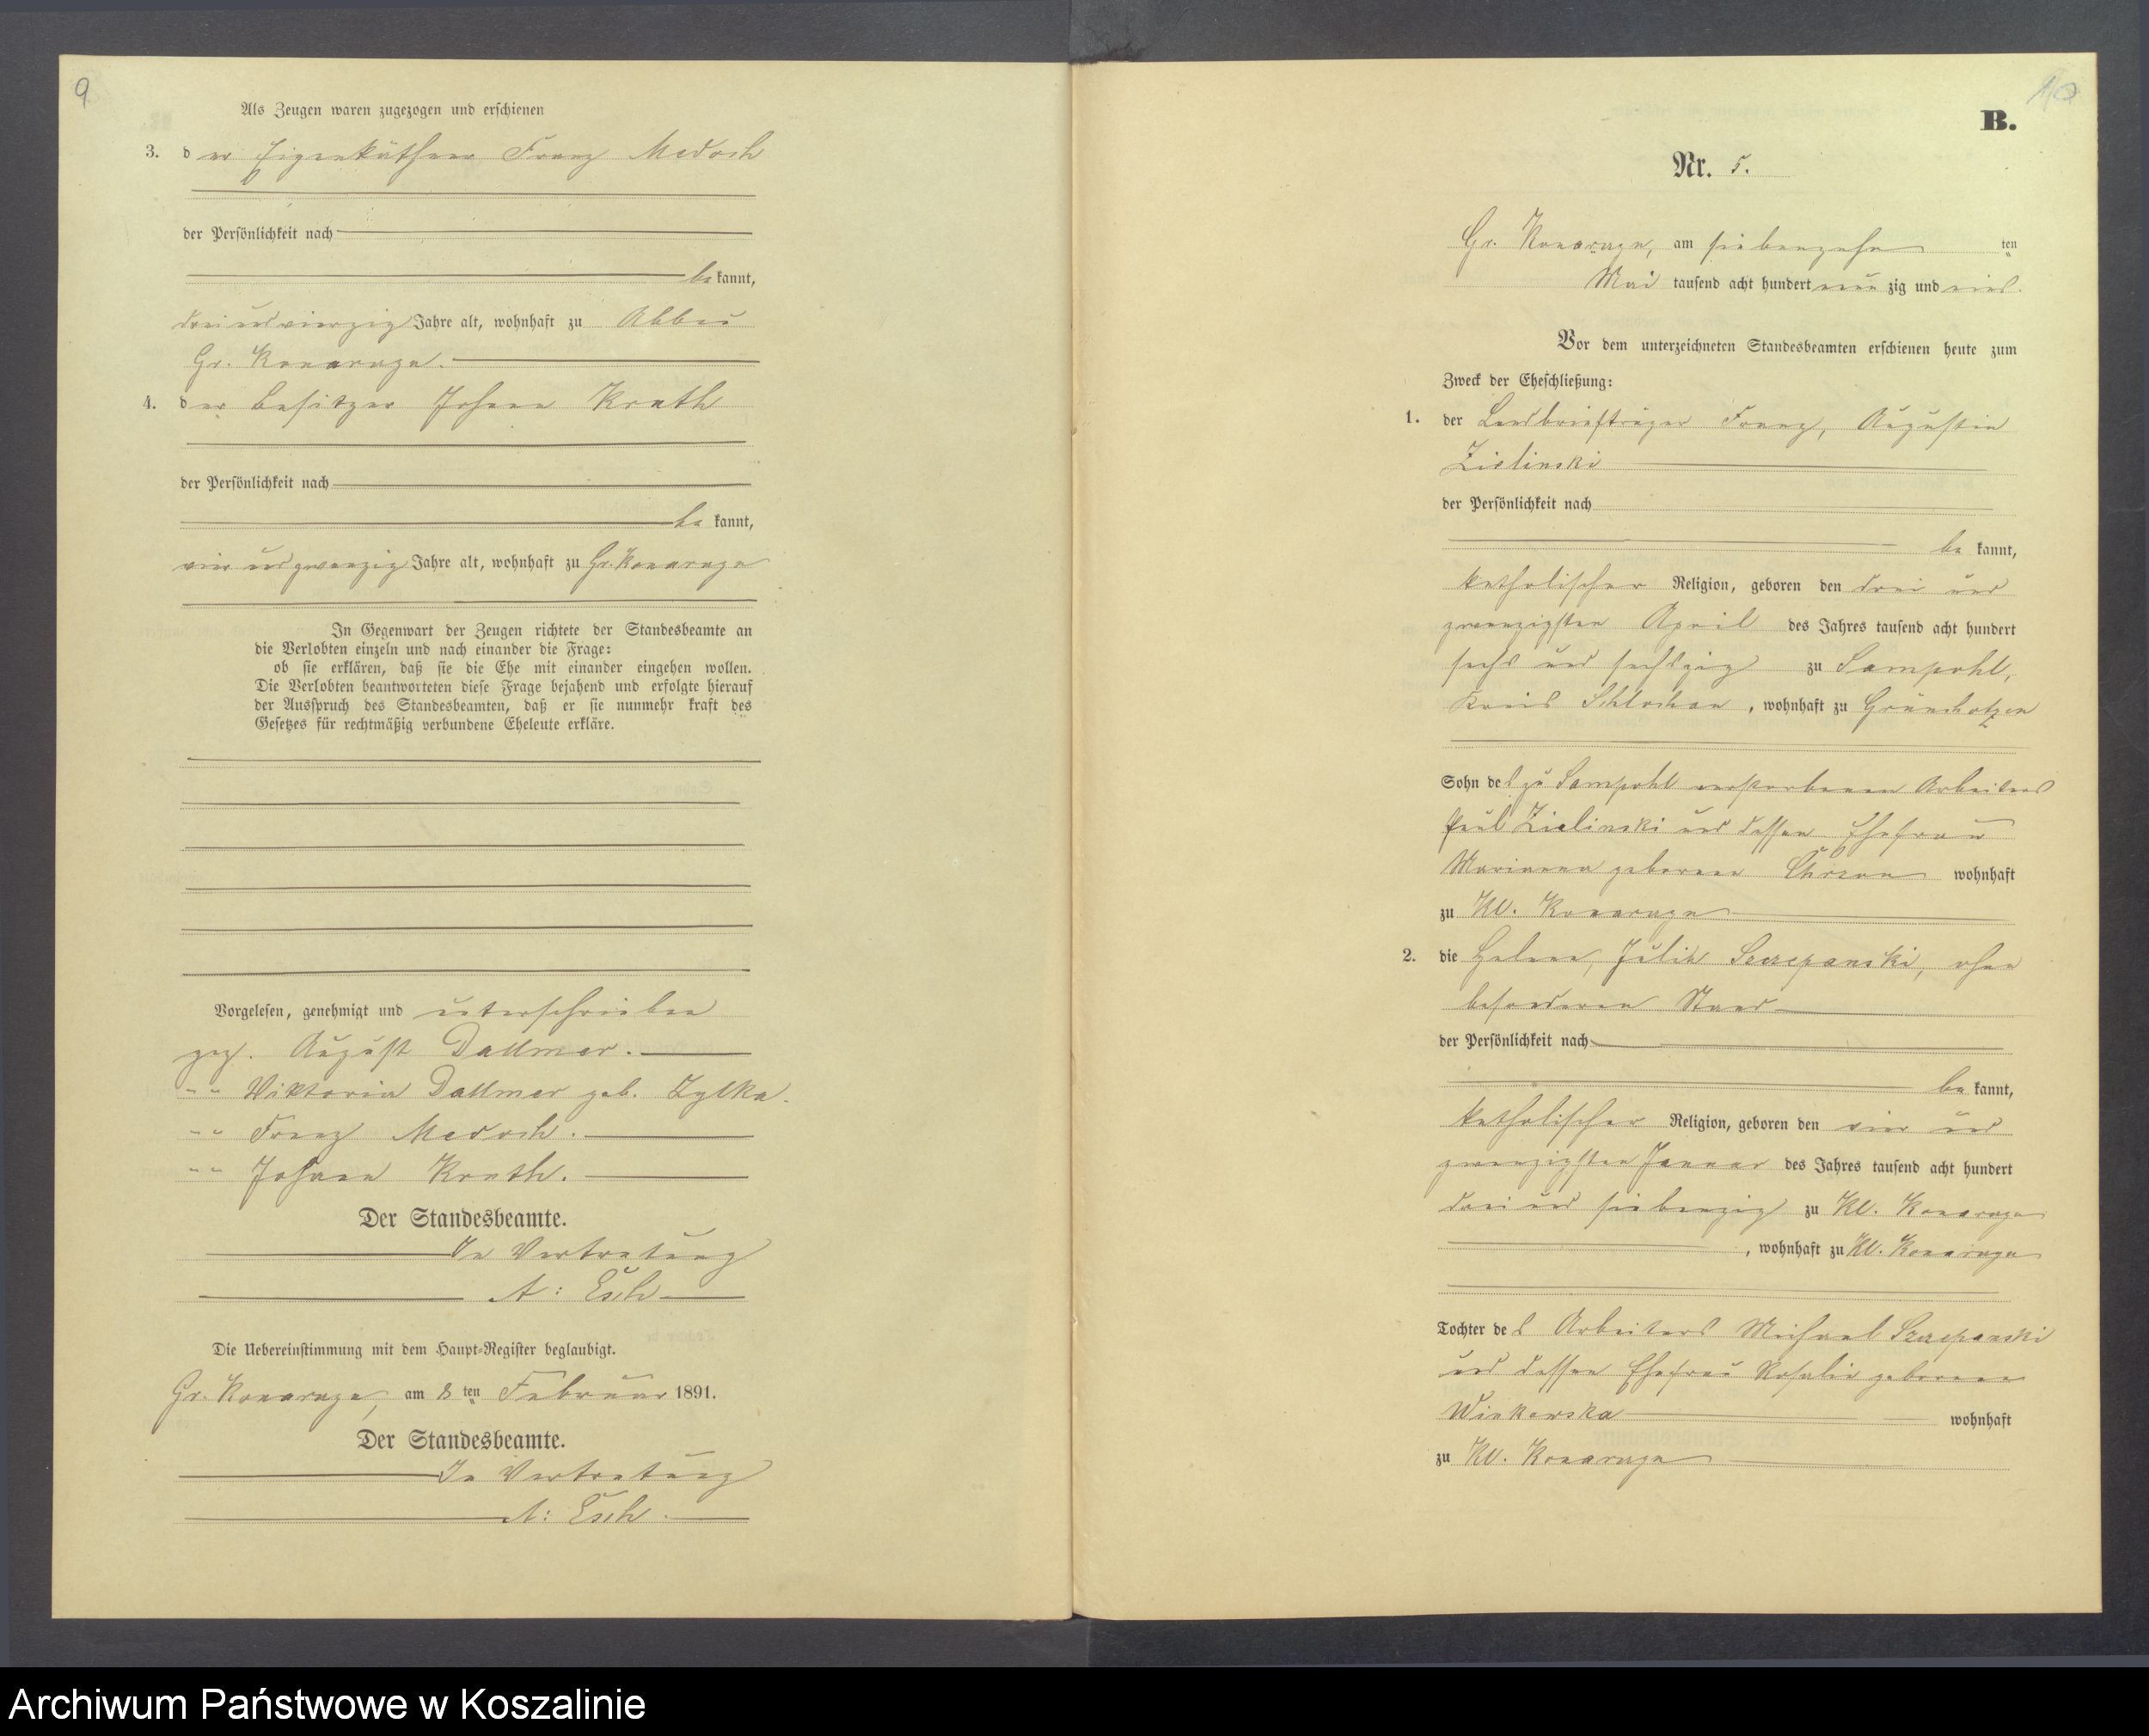 9
Als Zeugen waren zugezogen und erschienen
3. der Eigenkäthner Franz Medosch
der Persönlichkeit nach
bekannt,
drei und vierzig Jahre alt, wohnhaft zu Abbau
Gr. Konarzyn.
4. der Besitzer Johann Knuth
der Persönlichkeit nach
bekannt,
vier und zwanzig Jahre alt, wohnhaft zu Gr. Konarzyn
In Gegenwart der Zeugen richtete der Standesbeamte an
die Verlobten einzeln und nach einander die Frage:
ob sie erklären, daß sie die Ehe mit einander eingehen wollen.
Die Verlobten beantworteten diese Frage bejahend und erfolgte hierauf
der Ausspruch des Standesbeamten, daß er sie nunmehr kraft des
Gesetzes für rechtmäßig verbundene Eheleute erkläre.
Vorgelesen, genehmigt und unterschrieben
gez. August Dallmer.
"" Viktoria Dallmer geb. Zylka.
"" Franz Medosch.
"" Johann Knuth.
Der Standesbeamte.
In Vertretung
A: Esch
Die Uebereinstimmung mit dem Haupt-Register beglaubigt.
Gr. Konarzyn, am 8ten Februar 1891.
Der Standesbeamte.
In Vertretung
A: Esch.
10
B.
Nr. 5.
Gr. Konarzyn, am siebenzehnten
Mai tausend acht hundert neunzig und eins.
Vor dem unterzeichneten Standesbeamten erschienen heute zum
Zweck der Eheschließung:
1. der Landbriefträger Franz, Augustin
Zielinski
der Persönlichkeit nach
bekannt,
katholischer Religion, geboren den drei und
zwanzigsten April des Jahres tausend acht hundert
sechs und sechszig zu Sampohl,
Kreis Schlochau, wohnhaft zu Grünchotzen
Sohn des zu Sampohl verstorbenen Arbeiters
Paul Zielinski und dessen Ehefrau
Marianna geborene wohnhaft
zu Kl. Konarzyn
2. die Helene, Julia Szczepanski, ohne
besonderen Stand
der Persönlichkeit nach
bekannt,
katholischer Religion, geboren den vier und
zwanzigsten Januar des Jahres tausend acht hundert
drei und siebenzig zu Kl. Konarzyn
, wohnhaft zu Kl. Konarzyn
Tochter des Arbeiters Michael Szczepanski
und dessen Ehefrau Rosalie geborene
wohnhaft
zu Kl. Konarzyn
Archiwum Państwowe w Koszalinie